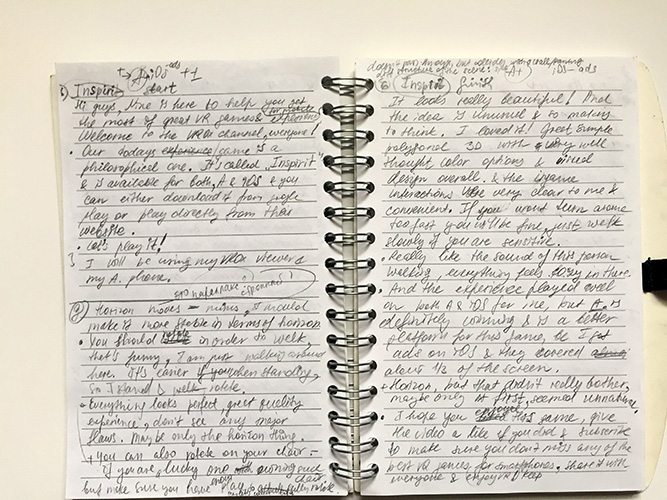 iOS ads +1
1) Inspirit start
Hi guys, Nine is here to help you get
the most of great VR games & experiences
Welcome to the VROX channel, everyone!
• Our todays game is a
philosophical one. It's called Inspirit
& is available for both A & iOS & you
can either download it from google
play or play directly from their
website.
• Let's play it!
I will be using my VROX viewer &
my A. phone.
2) horizon moves - minus, it would
make it more stable in terms of horizon
• You should rotate in order to walk,
that's funny, I am just walking around
here. It's easier if you when standing,
so I stand & rotate.
• Everything looks perfect, great quality
experience, don't see any major
flaws. Maybe only the horizon thing.
+ you can also rotate on your chair -
if you are lucky one owning such chair
but make sure you have fully rotate
structure of the scene: A+) iOS - ads
Inspirit finish
It looks really beautiful! And
the idea is unusual & so makes
to think. I loved it! Great simple
polygonal 3D with very well
thought color options &
design overall. & the ingame
interactions were very clear to me &
convenient. If you won't turn around
too fast you will be fine, just walk
slowly if you are sensitive.
• Really like the sound of this person
walking, everything feels so in there.
• And the experience played well
on both A & iOS for me, but A. is
definitely winning & is a better
platform for this game, bc I get
ads on iOS & they covered
about 1/3 of the screen.
• Horizon, but that didn't really bother,
maybe only at first, seemed unnatural.
• I hope you enjoyed this game, give
the video a like if you did & subscribe
to make sure you don't miss any of the
best VR games for smartphones. Share it with
everyone & enjoy VR